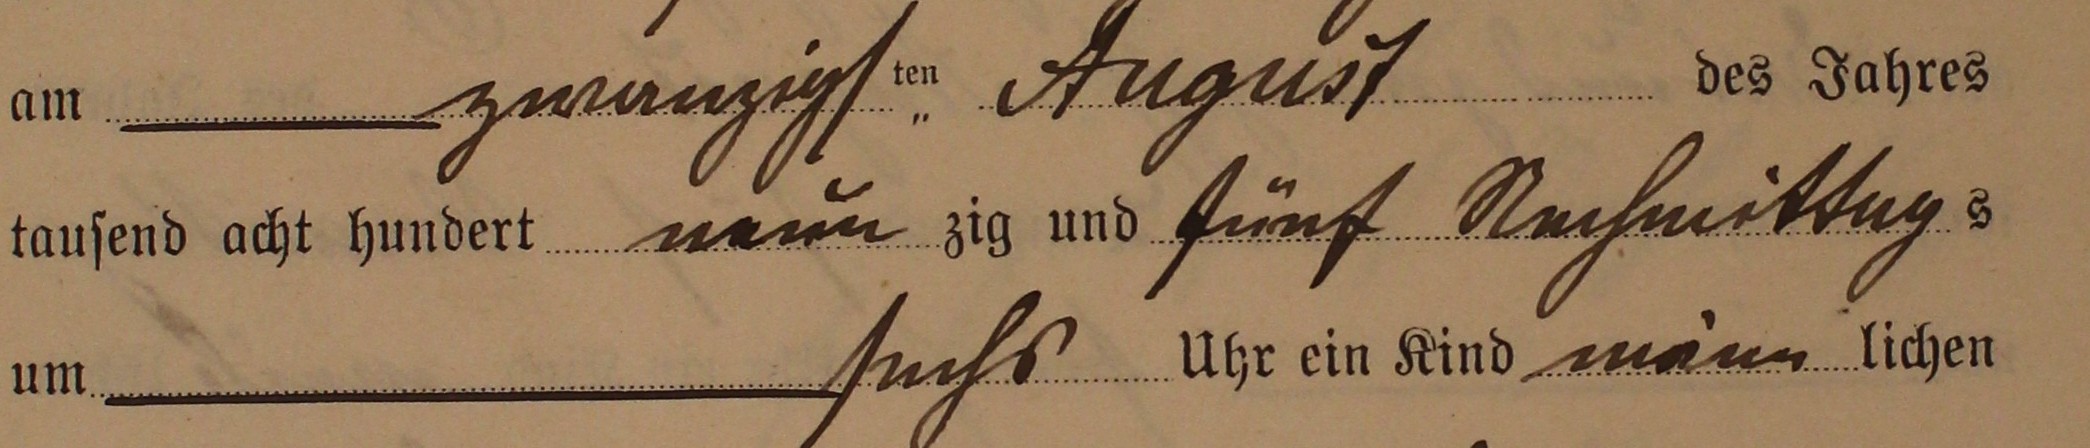 am zwanzigsten August des Jahres
tausend acht hundert neun zig und fünf Nachmittag s
um sechs Uhr ein Kind männ lichen